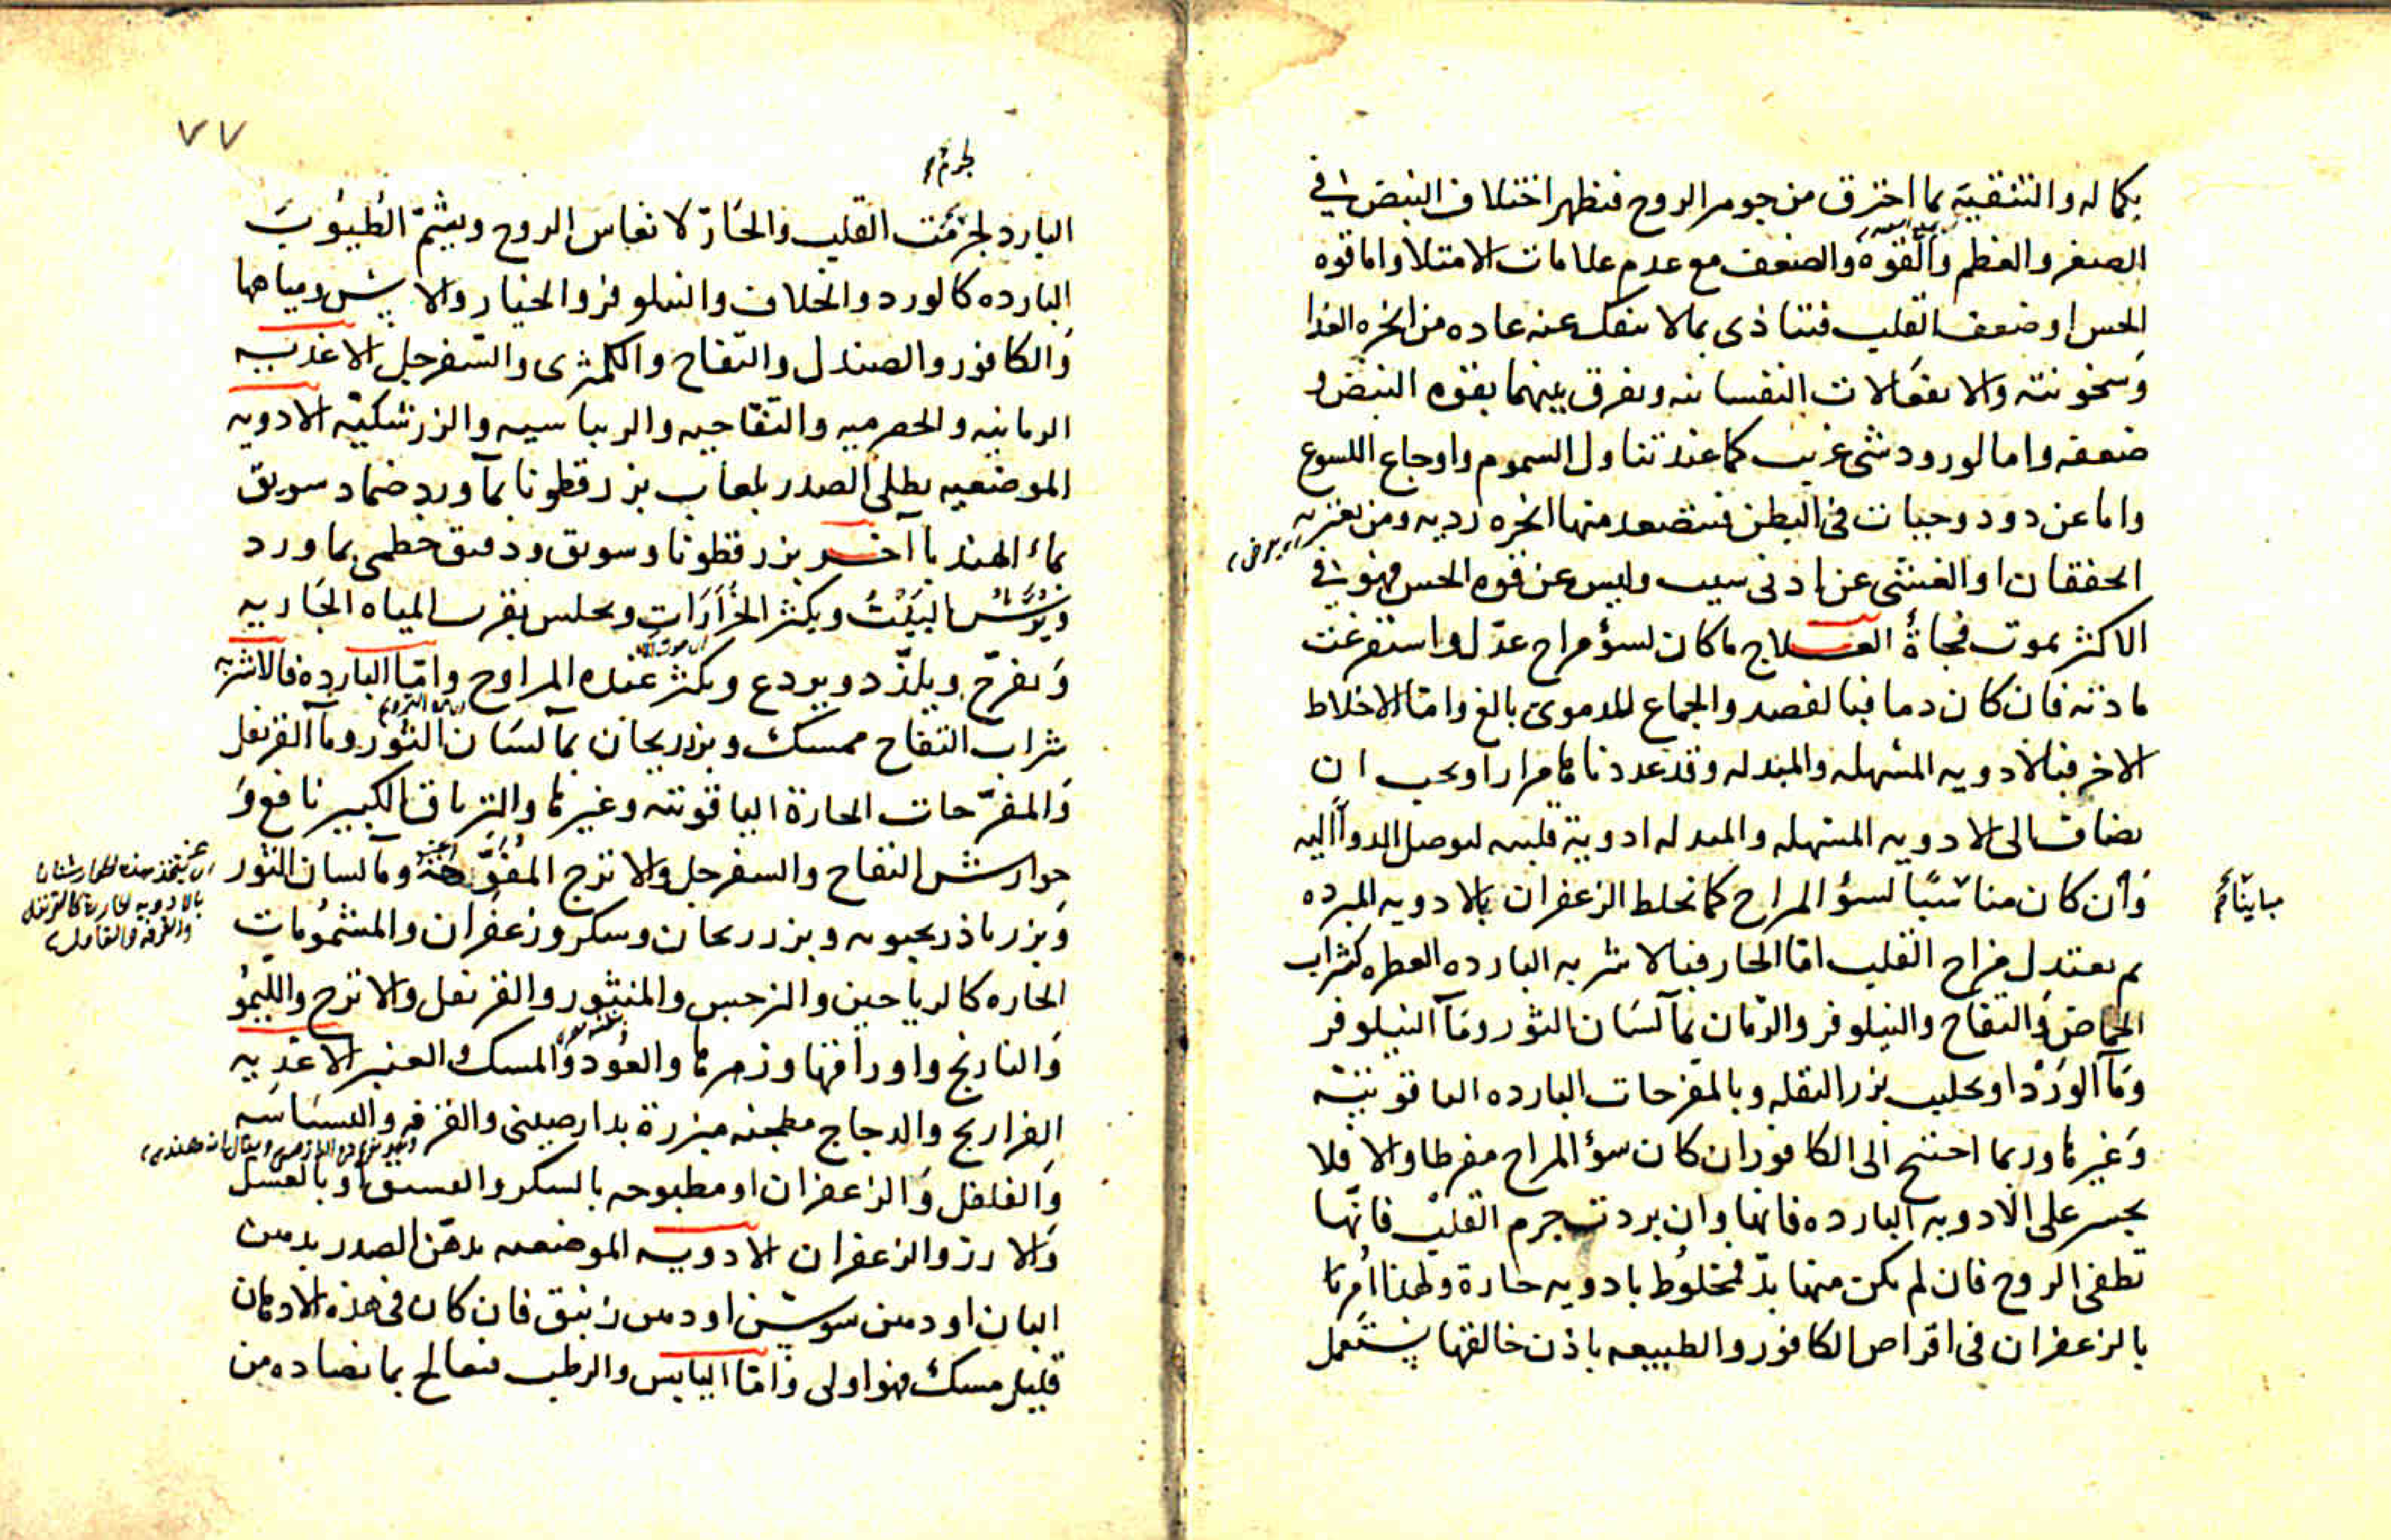 بكماله والتنقية بما احترق من جوهر الروح فيظهر اختلاف النبض في
الصغر والعظم والقوة والضعف مع عدم علامات الامتلا واما قوه
الحس او ضعف القلب فيتاذى بما لا ينفك عنه عاده من ابخره الغذا
وسخونته والانفعالات النفسانيه ويفرق بينهما بقوه النبض و
ضعفه واما لورود شى غريب كما عند تناول السموم واوجاع اللسوع
واما عن دود وحيات فى البطن فيتصعد منها ابخره رديه ومن يعتريه
الخفقان او الغشى عن ادنى سبب وليس عن قوه الحس فهو في
الاكثر يموت فجاةً العلاج ما كان لسؤ مزاج عدّل واستفرغت
مادته فان كان دما فبالفصد والجماع للدموى بالغ وامّا الاخلاط
الاخر فبالادويه المسهله والمبدله وقد عددناها مرارا ويجب ان
يضاف الى الادويه المسهله والمبدله ادوية قلبيه لتوصل الدوآ اليه
وأن كان مناسبًا لسؤ المزاج كما نخلط الزعفران بالادويه المبرده
ثم يعتدل مزاج القلب امّا الحار فبالاشربه البارده العطره كشراب
الحماض والتفاح والنيلوفر والرمان بمآ لسان الثور ومآ النيلوفر
ومآ الورد او بحليب بزر البقله وبالمفرحات البارده الياقوتيّه
وغيرها وربما احتيج الى الكافور ان كان سؤ المزاج مفرطا والا فلا
يجسر على الادويه البارده فانها وان بردت جرم القلب فانّها
تطفى الروح فان لم يكن منها بدّ فمخلوط بادويه حارة ولهذا اُمرنا
بالزعفران فى اقراص الكافور والطبيعه باذن خالقها يستعمل
٧٧
لجرم
البارد لجرم القلب والحارّ لانعاش الروح ويشمّ الطيوب
البارده كالورد والخلاف والنيلوفر والخيار والاس ومياهها
والكافور والصندل والتفاح والكمثرى والسفرجل الاغذيه
الرمانيه والحصرميه والتفّاحيه والريباسيه والزرشكيّه الادويه
الموضعيه يطلى الصدر بلعاب بزر قطونا بمآ ورد ضماد سويق
بماء الهندبا آخر بزر قطونا وسويق ودقيق خطمى بماورد
ويرش البيت ويكثر الخرارات ويجلس بقرب المياه الجاريه
ويفرّح ويلذّذ ويودع ويكثر عنده المراوح وامّا البارده فالاشربه
شراب التفاح ممسك وبزر ريحان بمآ لسان الثور ومآ القرنفل
والمفرّحات الحارة الياقوتيه وغيرها والترياق الكبير نافع و
جوارش التفاح والسفرجل والاترج المفوّهة ومآ لسان الثور
وبزر باذرنجبويه وبزر ريحان وسكر وزعفران والمشمومات
الحاره كالرياحين والنرجس والمنثور والقرنفل والاترج والليمُو
والنارنج واوراقها وزهرها والعُود والمسك العنبر الاغذيه
الفراريج والدجاج مطجنه مبزرة بدارصينى والقرفه والبسباسه
والفلفل والزعفران او مطبوخه بالسكر والفستق او بالعسل
والارز والزعفران الادويه الموضعيه يدهّن الصدر بدهن
البان او دهن سوسن او دهن زنبق فان كان فى هذه الادهان
قليل مسك فهو اولى وامّا اليابس والرطب فيعالج بما يضاده من